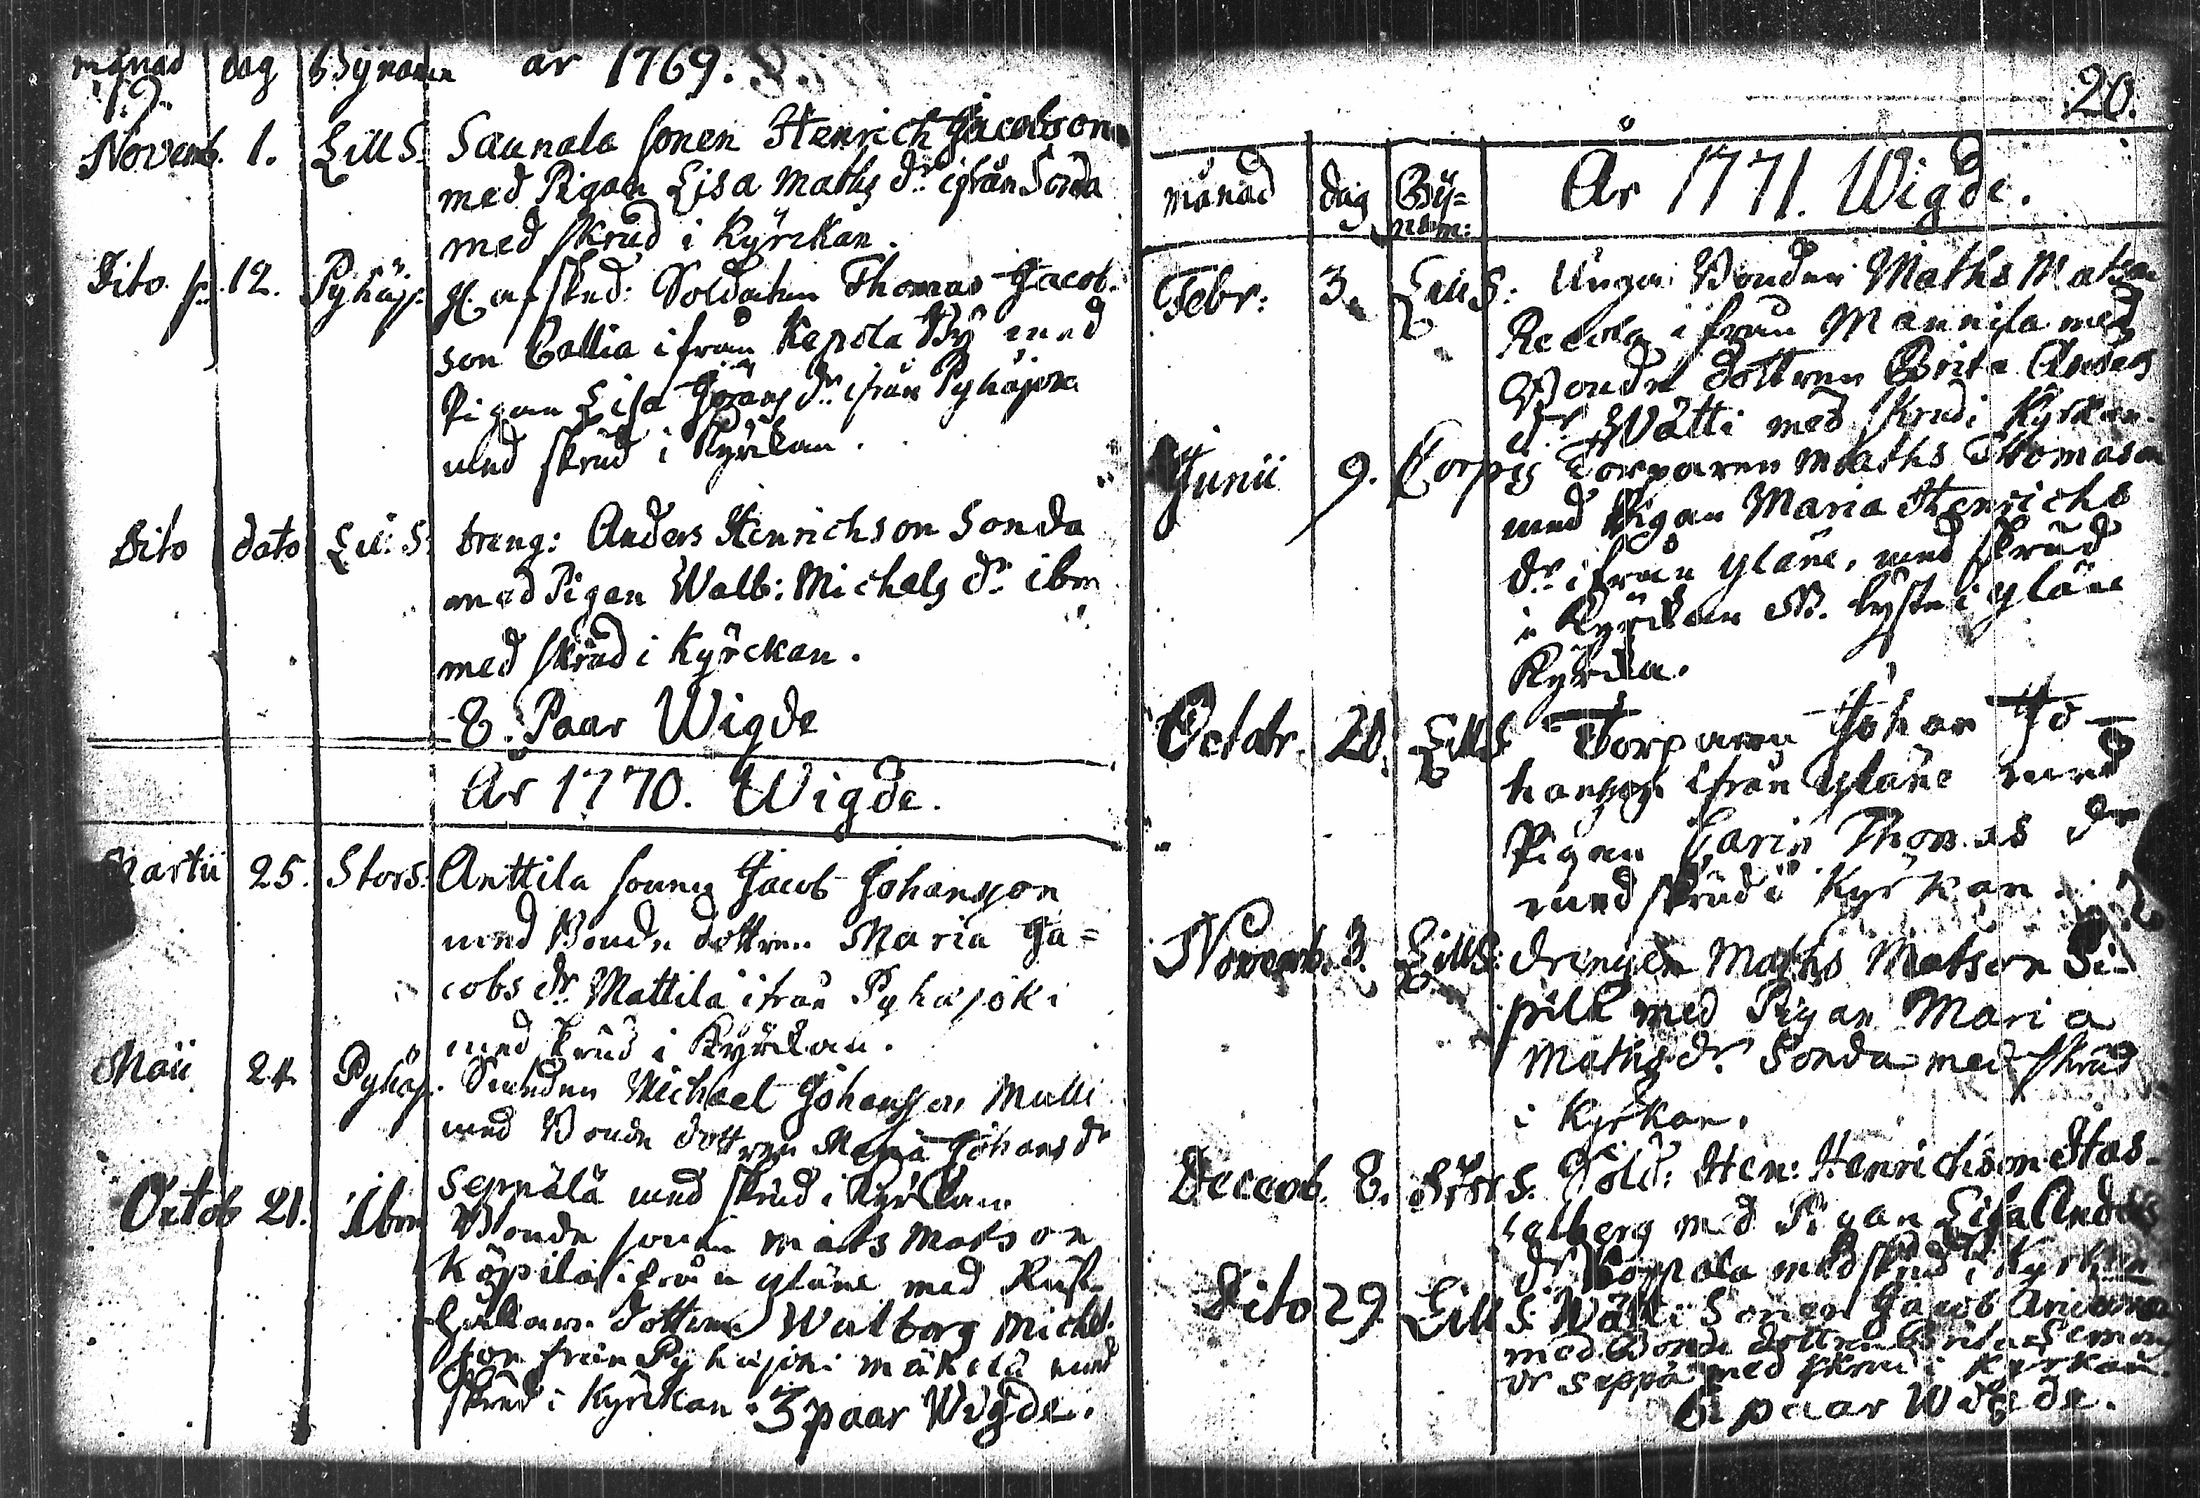 månad dag Bynamn år 1769.
19.
Novemb. 1. Lill S. Saunala sonen Henrich Jacobson
med Pigan Lisa Maths dr ifrån Sonda
med skrud i Kyrckan.
Dito 12. Pyhäj: afsked: Soldaten Thomas Jacob-
son Callia ifrån Kepola By med
Pigan Lisa Görans dr ifrån Pyhäjoki
med skrud i Kyrckan.
Dito dato Lill: S. dreng: Anders Henrichson Sonda
med Pigan Walb: Michels dr ibm
med skrud i Kyrckan.
8. Paar Wigde
År 1770. Wigde.
Martii 25. Stor S: Anttila sonen Jacob Johansson
med Bonde dottren Maria Ja=
cobs dr Mattila ifrån Pyhäjoki
med skrud i Kyrckan.
Maii 24 Pyhäj. Michael Johansson
med Bonde dottren Maria Johans dr
Seppälä med skrud i Kyrckan
Octob 21. Ibm Bonde sonen Mats Mats on
Köpilä ifrån Yläne med Rust-
hållare dottren Walborg Michel
från Pyhäjoki Mäkilä med
skrud i Kyrckan. 3 paar Wigde.
20.
månad dag By= År 1771. Wigde.
namn:
Febr: 3. Lill S: Unga Bonden Maths Matson
ifrån Mannila med
Bonde dottren Brita Anders
dr Wätti med skrud i Kyrkan.
Junii 9. Torparen Maths Thomason
med Pigan Maria Henrichs
dr ifrån Yläne, med skrud
i Kyrckan NB. lyste i Yläne
Kyrcka.
Octobr. 20. Lill S Torparen Johan Jo-
hansson ifrån Yläne med
Pigan Carin Thomas dr
med skrud i Kyrkan.
Novemb. 3. Lill S: drengen Maths Matson Pi-
med Pigan Maria
Maths dr Sonda med skrud
i Kyrkan.
Decemb. 8. Stor S. Sold: Hen: Henrichson Has-
selberg med Pigan Lisa Anders
dr med skrud i Kyrkan
Dito 29. Lill S. Wätti Sonen Jacob Anderson
med Bonde dottren Brita Simons
dr Seppä med skrud i Kyrkan.
6 paar Wigde.